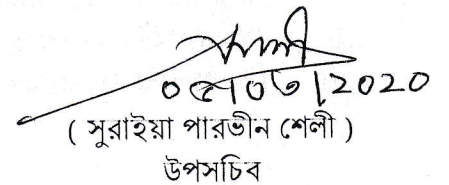 ০৫/০৩/2020
( সুরাইয়া পারভীন শেলী )
উপসচিব